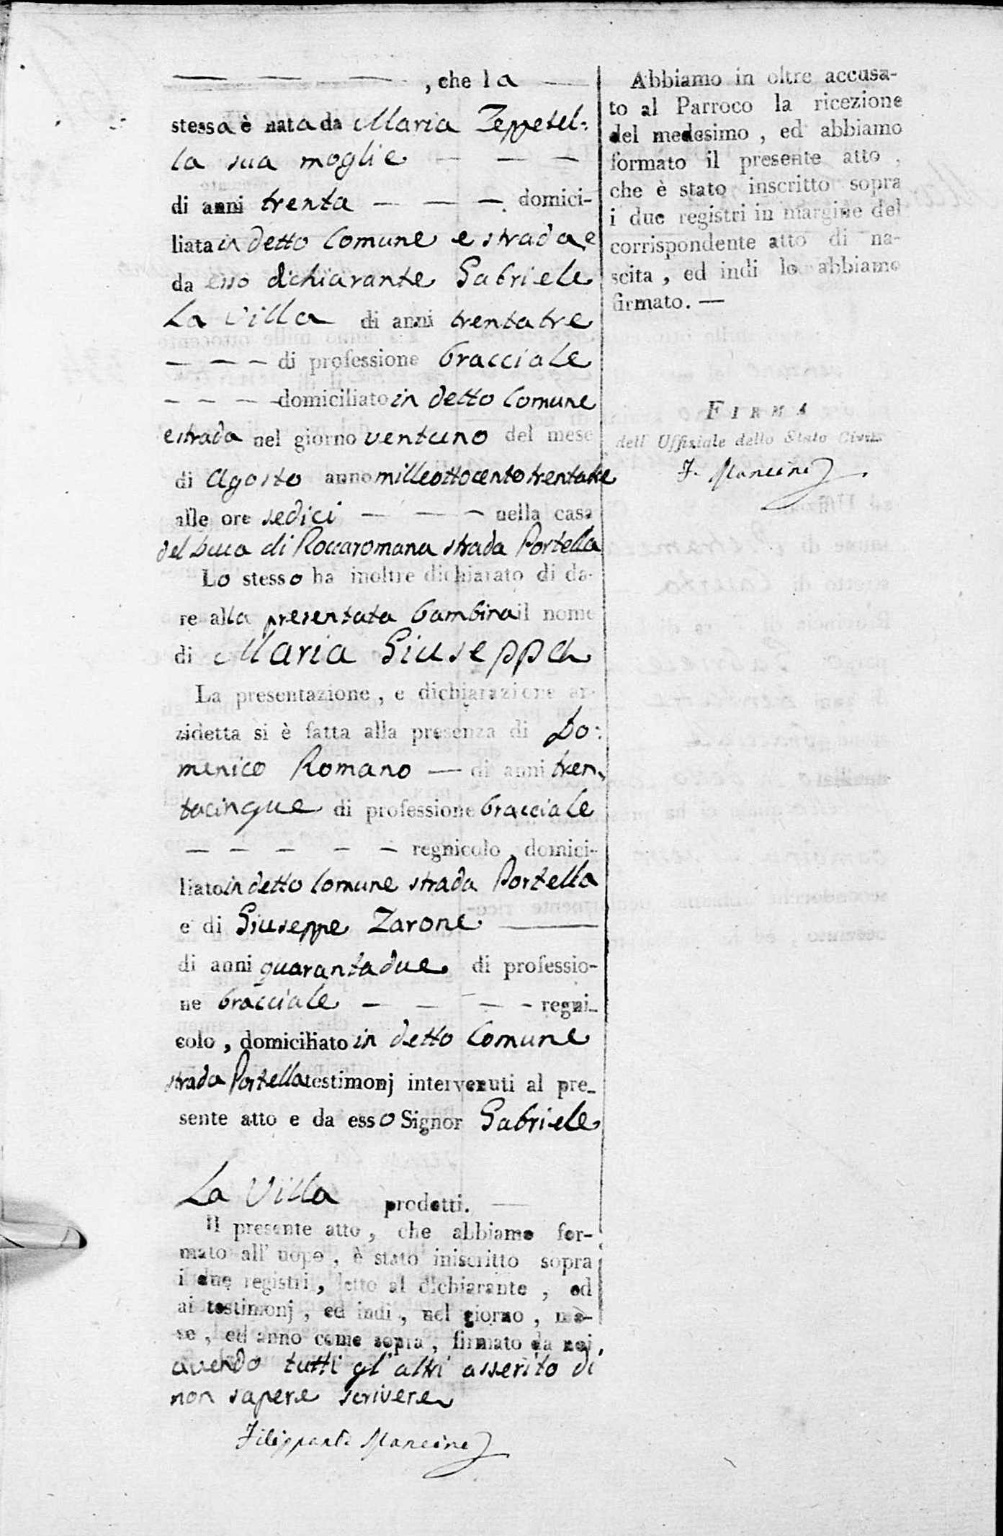 , che la
stessa è nata da Maria Zeppetel:
la sua moglie
di anni trenta — — — domici-
liata in detto Comune e strada, e
da esso dichiarante Gabriele
La Villa di anni trentatre
— — — di professione bracciale
— — — — domiciliato in detto Comune
e strada nel giorno ventuno del mese
di Agosto anno milleottocentotrentatre
alle ore sedici — — — nella casa
del Duca di Roccaromana strada Portella
Lo stesso ha inoltre dichiarato di da-
re alla presentata bambina il nome
di Maria Giuseppa
La presentazione, e dichiarazione an-
zidetta si è fatta alla presenza di Do:
menico Romano — di anni tren,
tacinque di professione bracciale
— — — — — regnicolo, domici-
liato in detto Comune strada Portella
e di Giuseppe Zarone
di anni quarantadue di professio-
ne bracciale — — — — regni-
colo, domiciliato in detto Comune
strada Portella testimonj intervenuti al pre-
sente atto e da esso Signor Gabriele
La Villa prodotti.
Il presente atto, che abbiamo for-
mato all'uopo, è stato iniscritto sopra
i due registri, letto al dichiarante, ed
ai testimonj, ed indi, nel giorno, me-
se, ed anno come sopra, firmato da noi
avendo tutti gl'altri asserito di
non sapere scrivere
Mancini
Abbiamo in oltre accusa-
to al Parroco la ricezione
del medesimo, ed abbiamo
formato il presente atto,
che è stato inscritto sopra
i due registri in margine del
corrispondente atto di na-
scita, ed indi lo abbiamo
firmato. —
FIRMA
dell' Uffiziale dello Stato Civile
F. Mancini